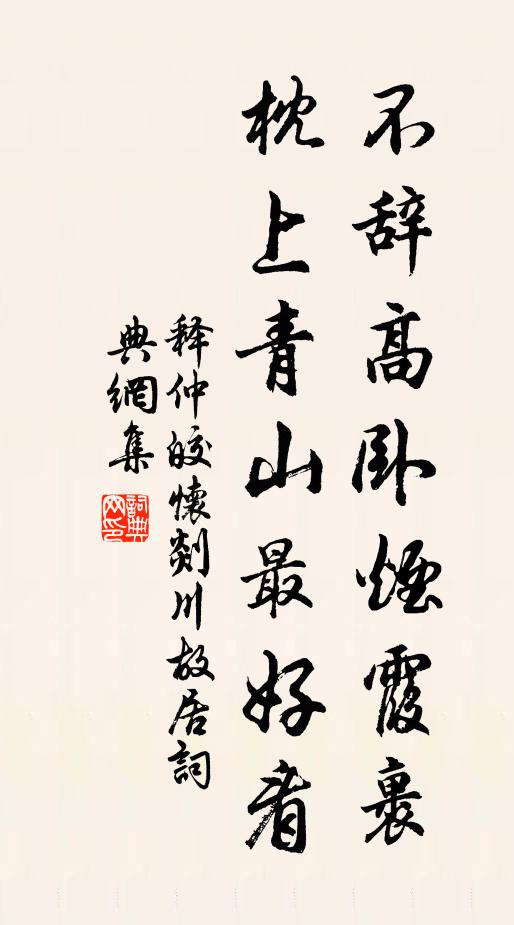 不辞高卧煙霞裏
枕上青山最好看
释仲皎懷剡川故居詞
典網集
詞典網印